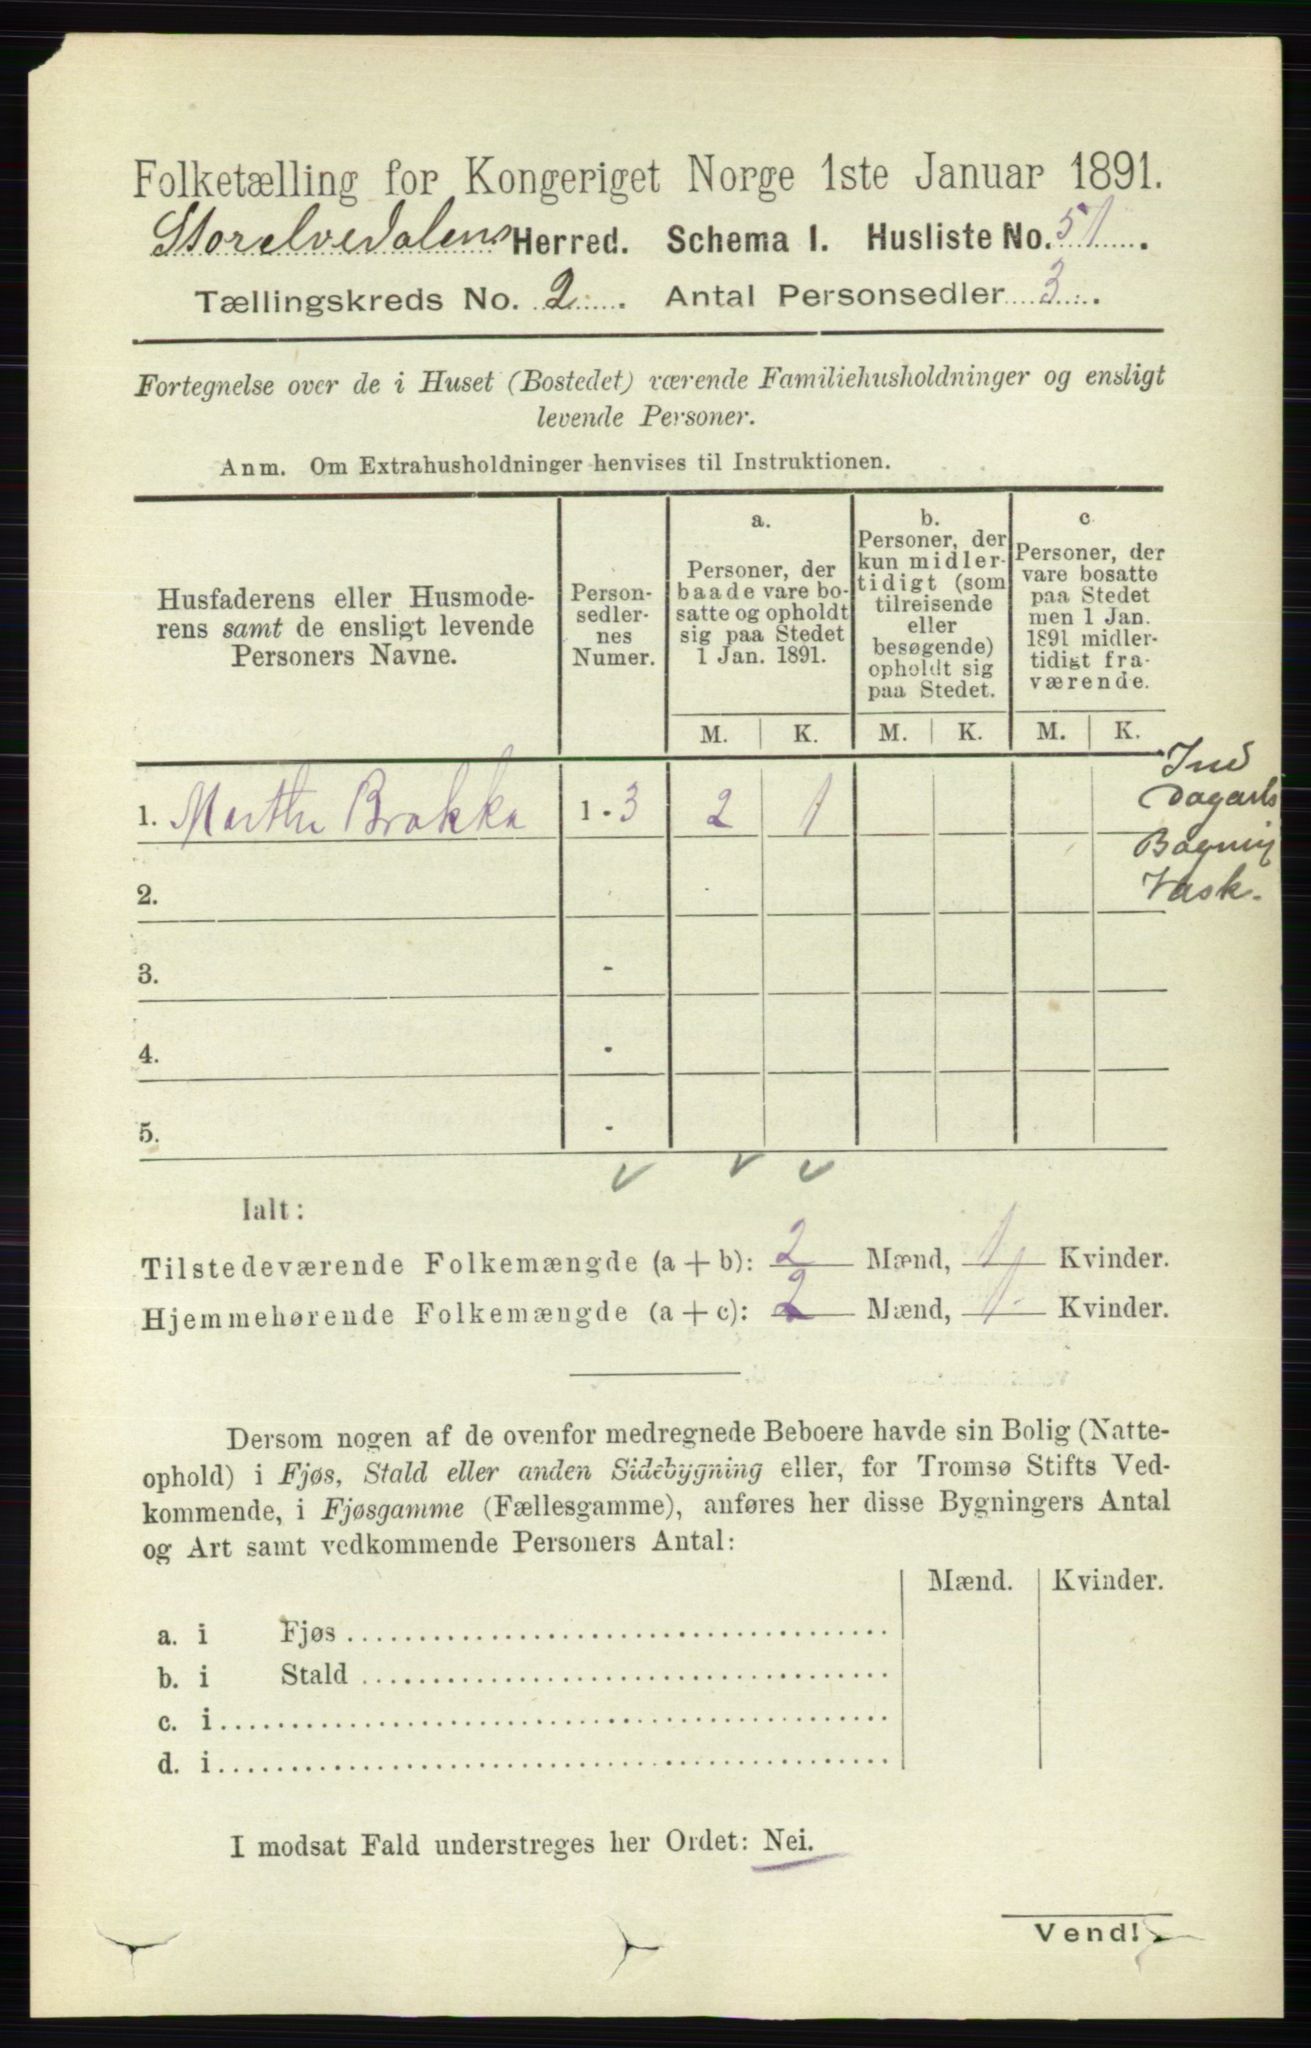 Folketælling for Kongeriget Norge 1ste Januar 1891.
Storelvedalens Herred. Schema I. Husliste No. 51.
Tællingskreds No. 2. Antal Personsedler 3.
Fortegnelse over de i Huset (Bostedet) værende Familiehusholdninger og ensligt
levende Personer.
Anm. Om Extrahusholdninger henvises til Instruktionen.
Husfaderens eller Husmode-
rens samt de ensligt levende
Personers Navne.
Person-
sedler-
nes
Numer.
a.
Personer, der
baade vare bo-
satte og opholdt
sig paa Stedet
1 Jan. 1891.
b.
Personer, der
kun midler-
tidigt (som
tilreisende
eller
besøgende)
opholdt sig
paa Stedet.
c.
Personer, der
vare bosatte
paa Stedet
men 1 Jan.
1891 midler-
tidigt fra-
værende.
M. K. M. K. M. K.
1. Marthe Brakka 1-3 2 1
Ind
Vask.
2.
3. -
4. -
5. -
Ialt:
Tilstedeværende Folkemængde (a + b): 2 Mænd, 1 Kvinder.
Hjemmehørende Folkemængde (a + c): 2 Mænd, 1 Kvinder.
Dersom nogen af de ovenfor medregnede Beboere havde sin Bolig (Natte-
ophold) i Fjøs, Stald eller anden Sidebygning eller, for Tromsø Stifts Ved-
kommende, i Fjøsgamme (Fællesgamme), anføres her disse Bygningers Antal
og Art samt vedkommende Personers Antal:
Mænd. Kvinder.
a. i Fjøs
b. i Stald
c. i
d. i
I modsat Fald understreges her Ordet: Nei.
Vend!